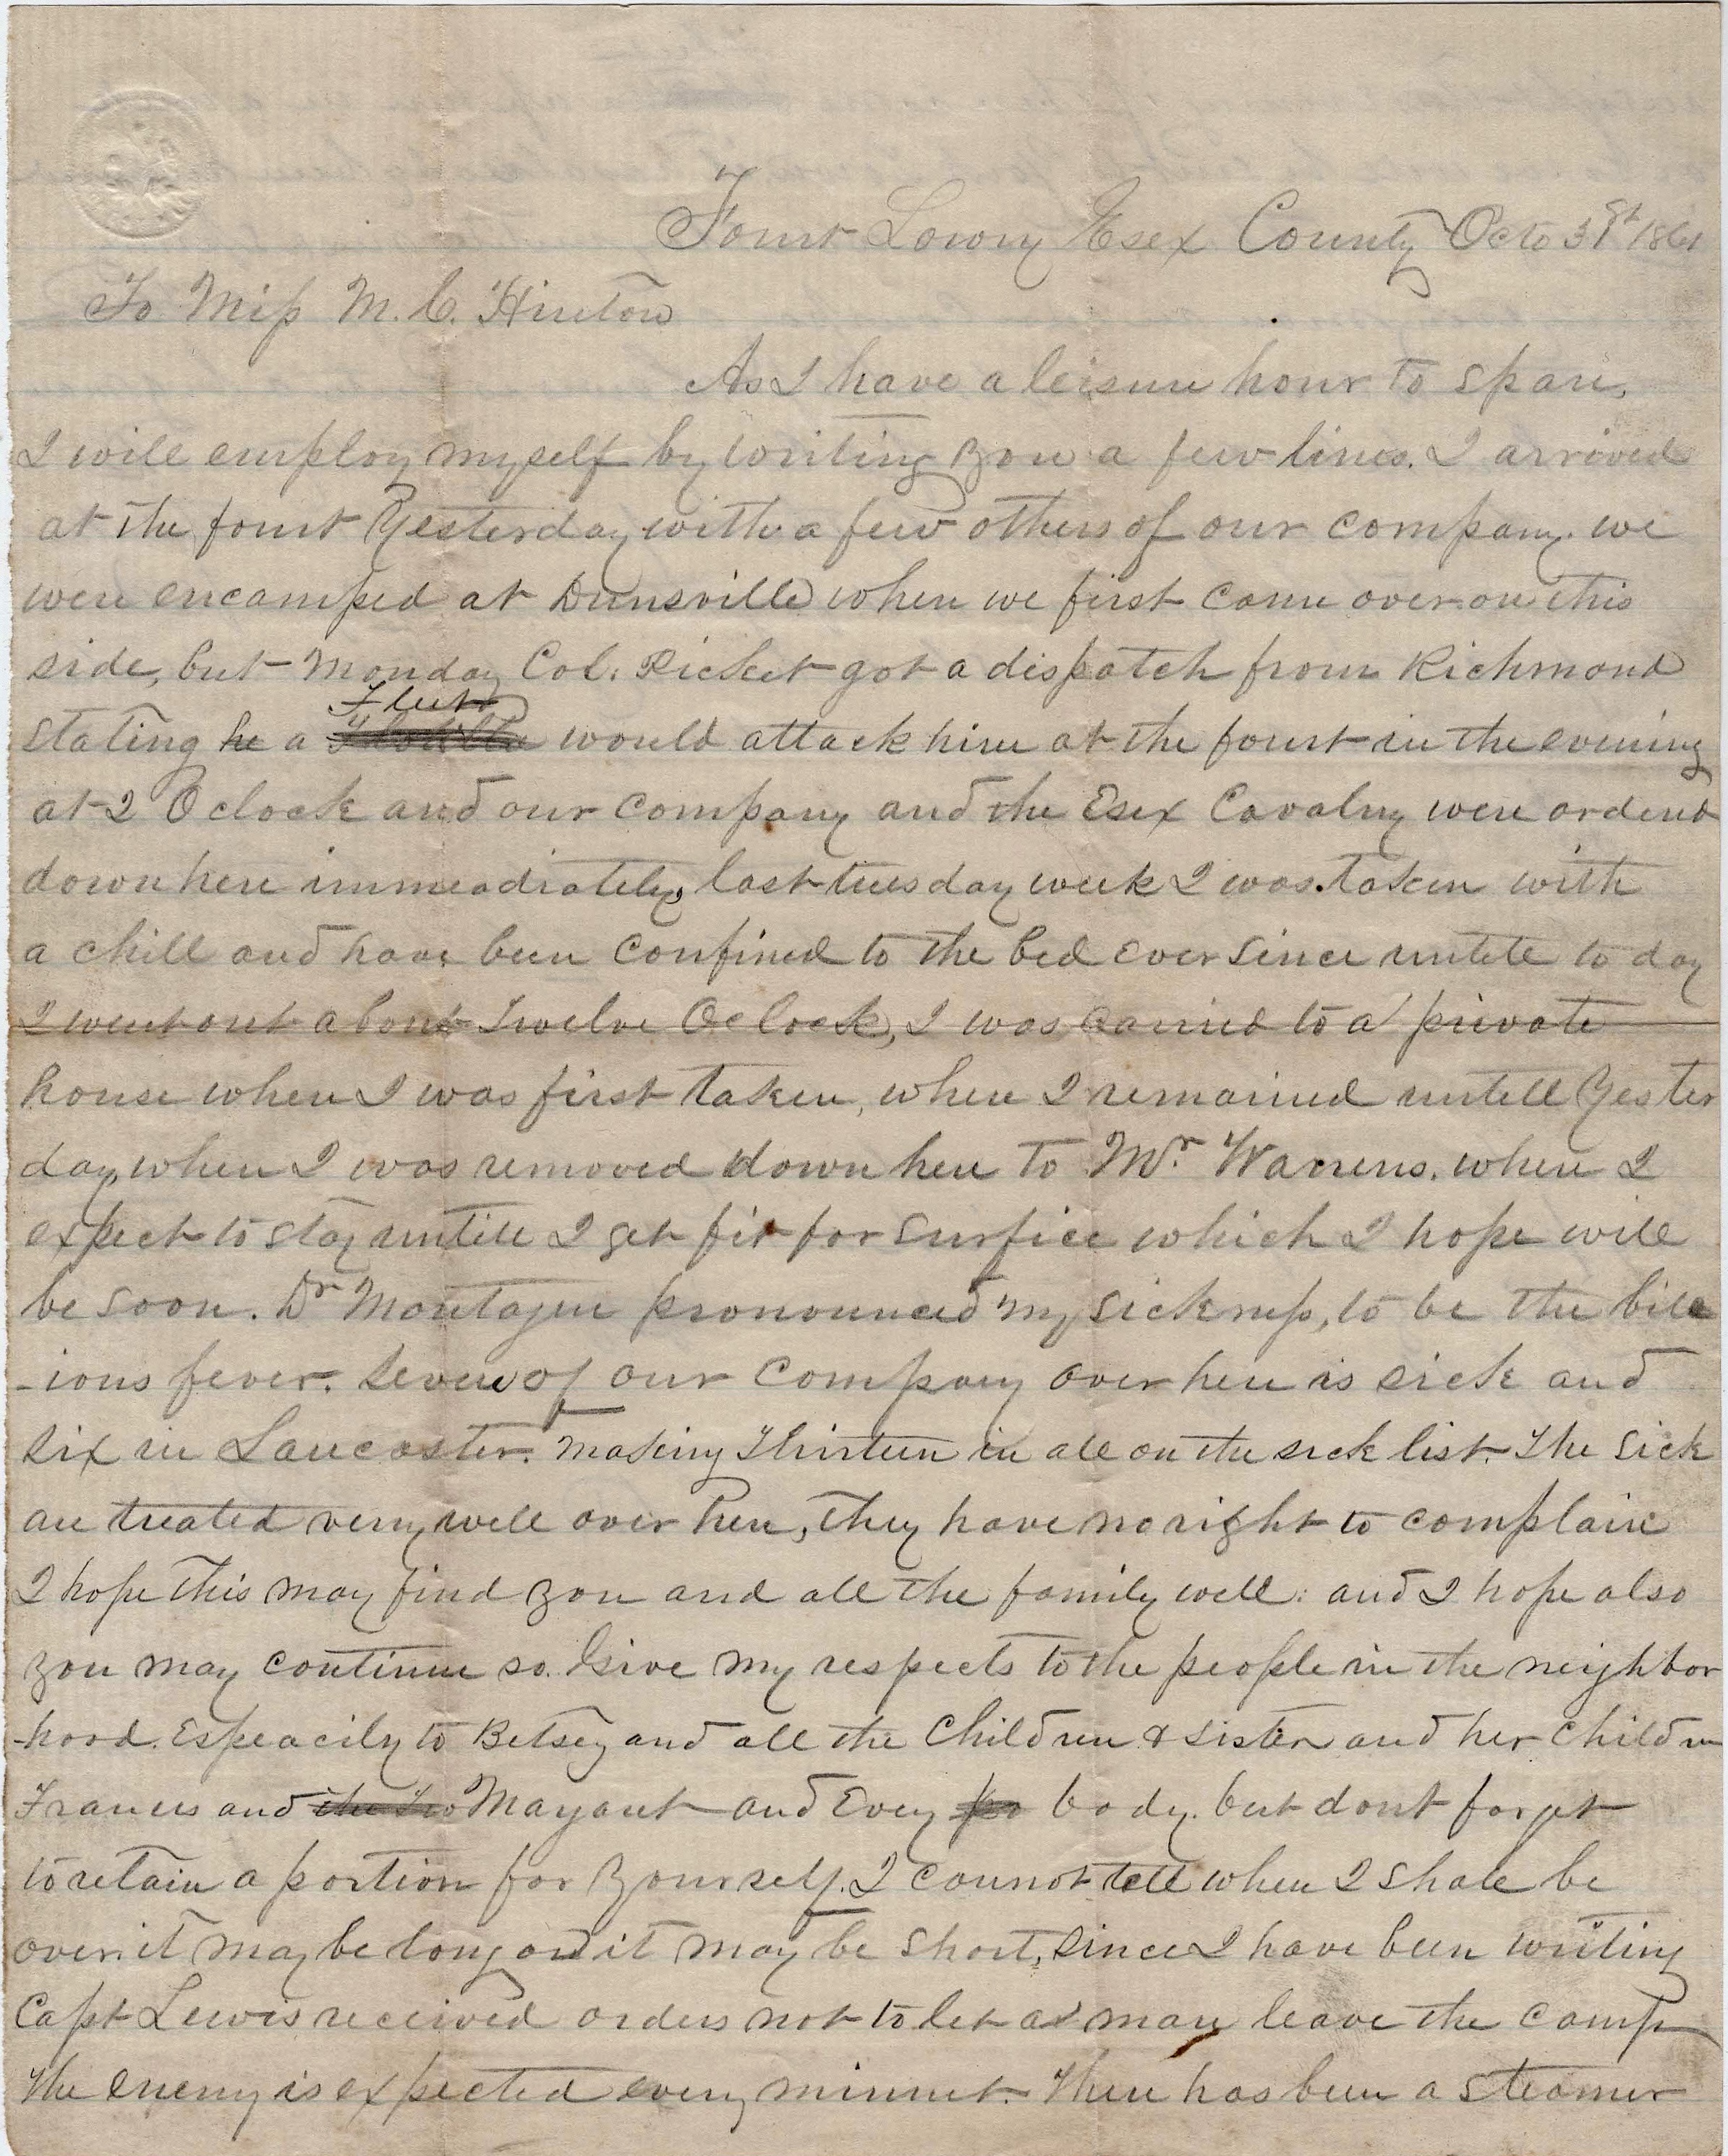 Fourt Lowry Esex County Octo 31st 1861
To Miss M. C. Hinton
As I have a leisure hour to spare,
I will employ myself by writing you a few lines. I arrived
at the fourt Yesterday with a few others of our company. we
were encamped at Dunsville when we first come over on this
side, but Monday Col. Picket got a dispatch from Richmond
Fleet
stating he a Flotilla would attack him at the fourt in the evening
at 2 Oclock and our company and the Esex Cavalry were orderd
down here immeadiately, last tuesday week I was taken with
a chill and have been confined to the bed ever since untill to day
I went out about Twelve Oclock, I was carried to a private
house when I was first taken, where I remained untill Yester
day, when I was removed down here to Mr. Warrens. where I
expect to stay untill I get fit for surfice which I hope will
be soon. Dr Montague pronounced my sickness, to be the bile
-ious fever. Seven of our company over here is sick and
six in Lancaster. making Thirteen in all on the sick list. The sick
are treated very well over here, they have no right to complain
I hope this may find you and all the family well: and I hope also
you may continue so. Give my respects to the people in the neighbor
-hood. Espeacily to Betsey and all the Children & sister and her children
Frances and the Margaret and Every body. but dont forget
to retain a portion for yourself. I cannot tell when I shall be
over. it may be long and it may be short, since I have been writing
Capt Lewis received orders not to let a man leave the camp
the enemy is expected every minnet. there has been a steamer